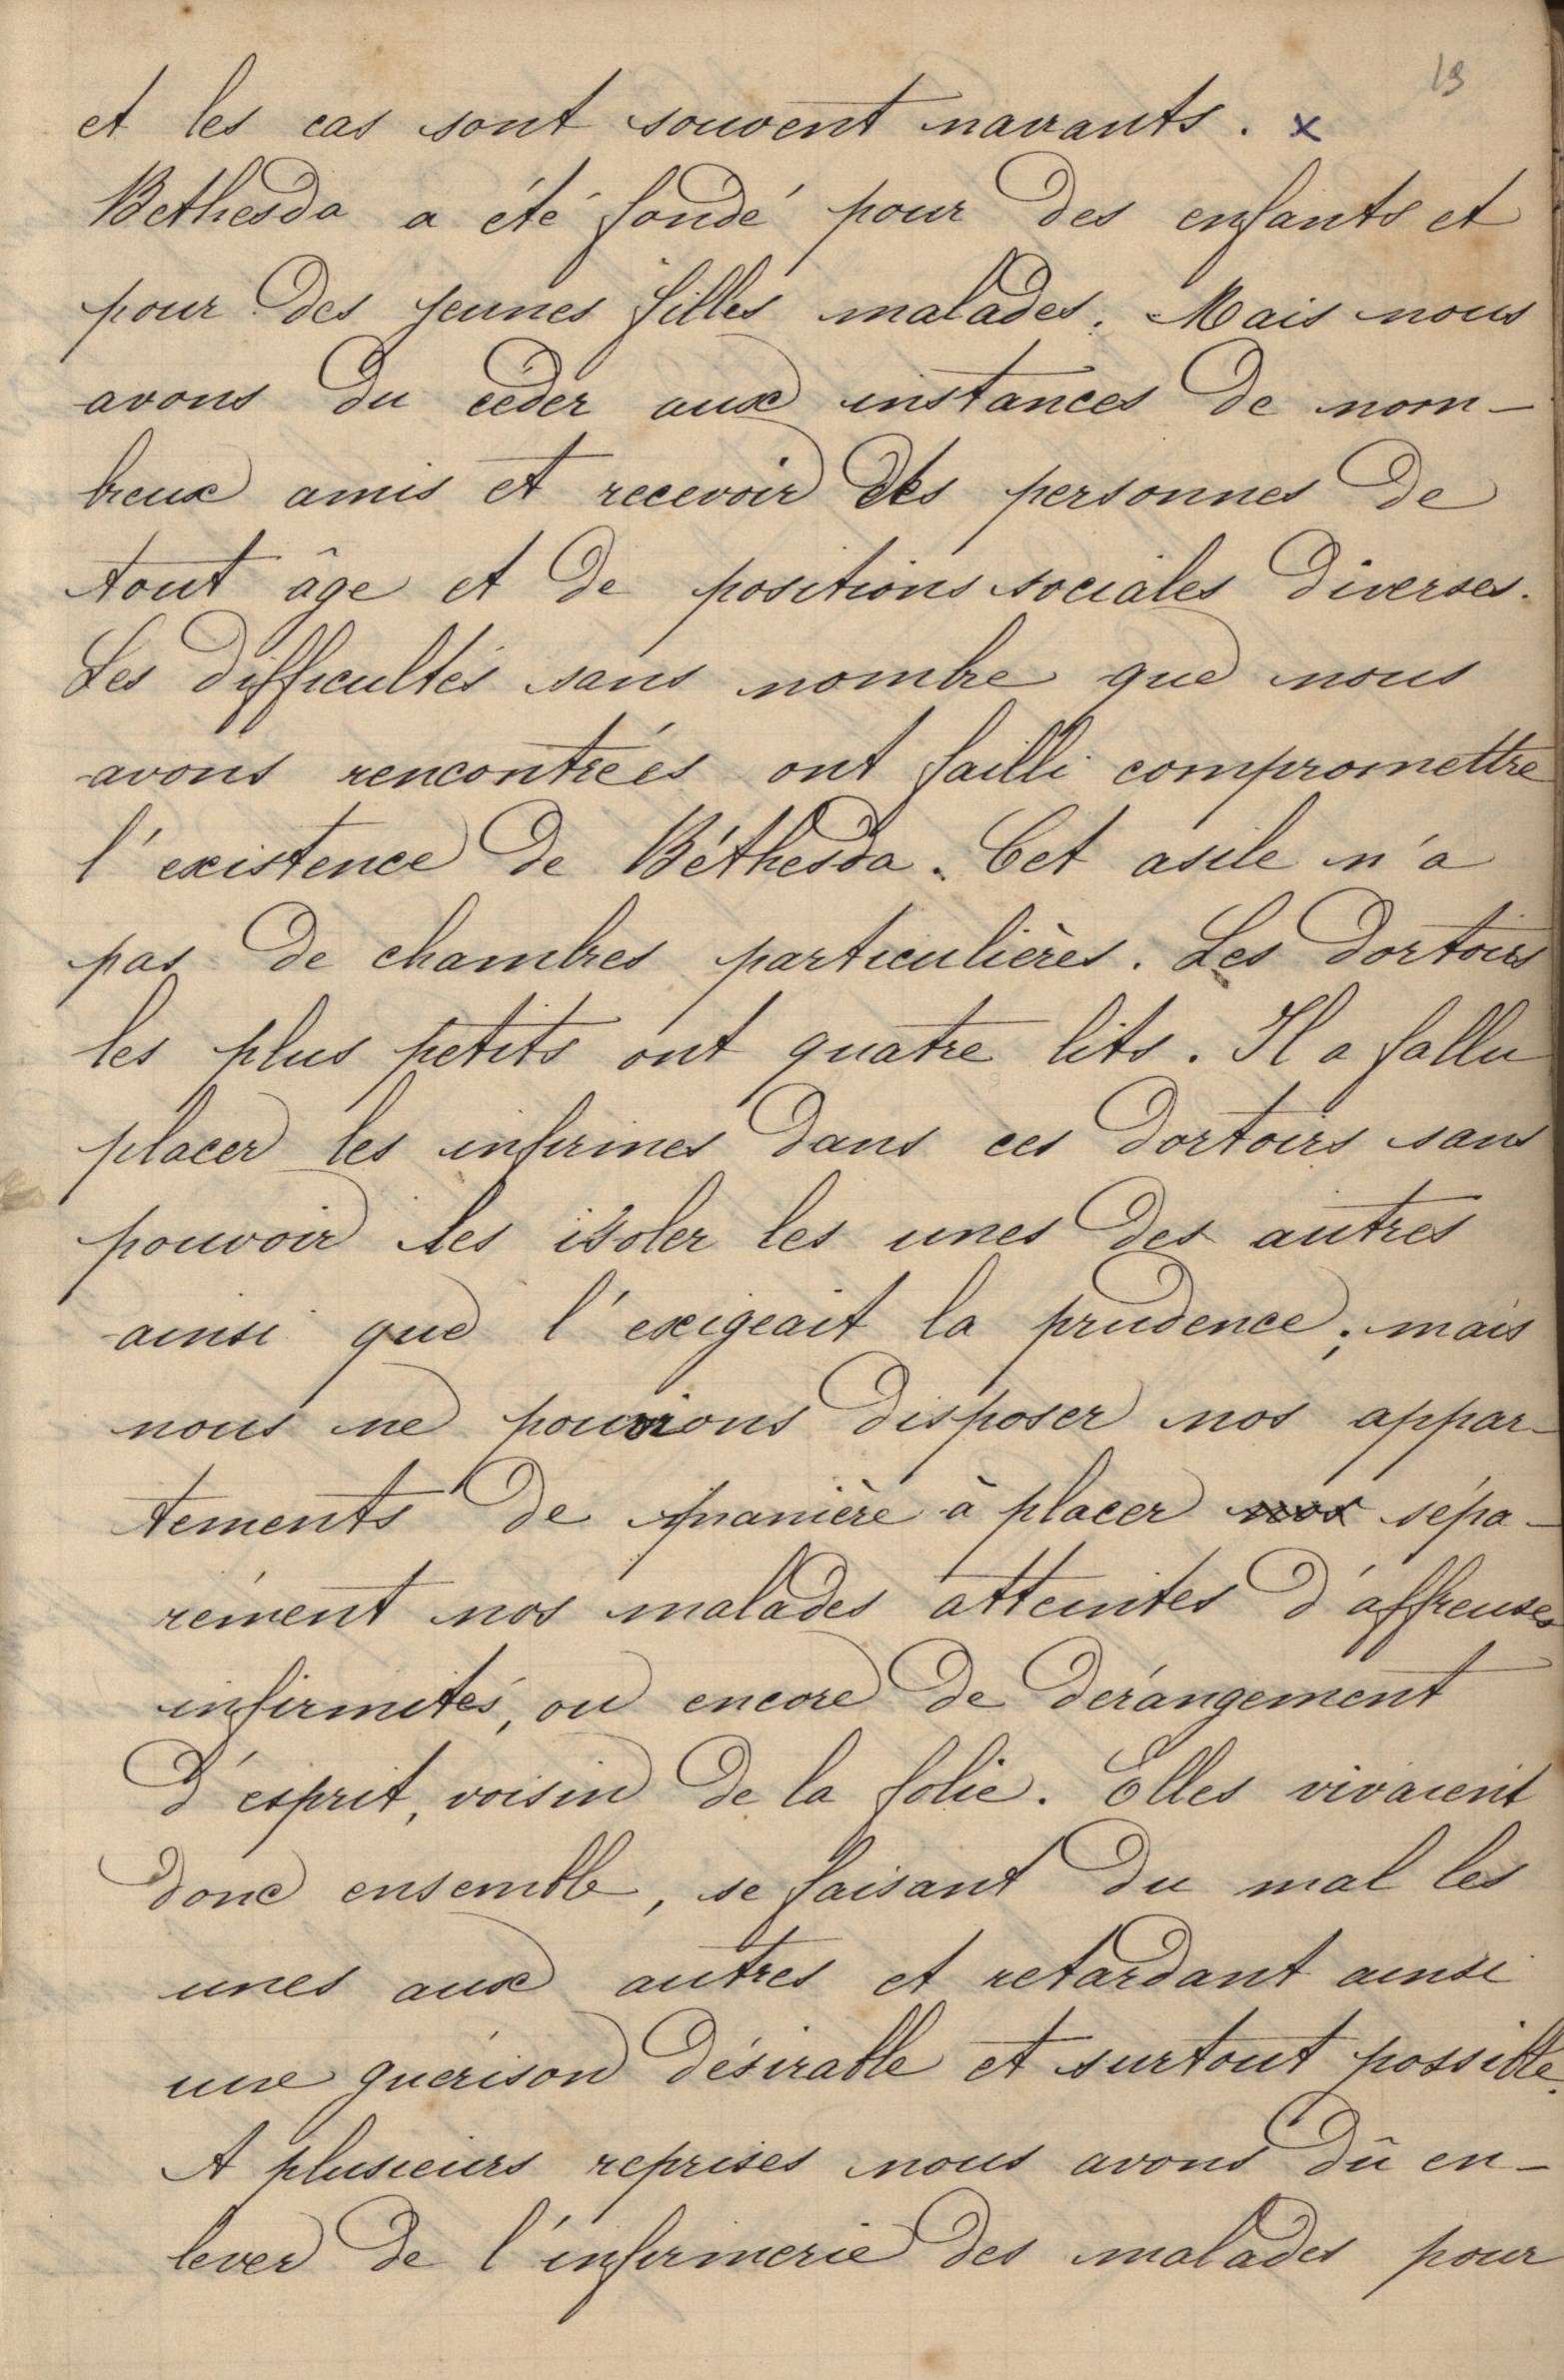 19
et les cas sont souvent navrants. x
Béthesda a été fondé pour des enfants et
pour des jeunes filles malades. Mais nous
avons du céder aux instances de nom-
breux amis et recevoir des personnes de
tout âge et de positions sociales diverses.
Les difficultés sans nombre que nous
avons rencontrées ont failli compromettre
l'existence de Béthesda. Cet asile n'a
pas de chambres particulières. Les dortoirs
les plus petits ont quatre lits. Il a fallu
placer les infirmes dans ces dortoirs sans
pouvoir les isoler les unes des autres
ainsi que l'exigeait la prudence; mais
nous ne pouvions disposer nos appar-
tements de manière à placer nos sépa-
rément nos malades atteintes d'affreuses
infirmités, ou encore de dérangement
d'esprit, voisin de la folie. Elles vivaient
donc ensemble, se faisant du mal les
unes aux autres et retardant ainsi
une guérison désirable et surtout possible.
A plusieurs reprises nous avons dû en-
lever de l'infirmerie des malades pour